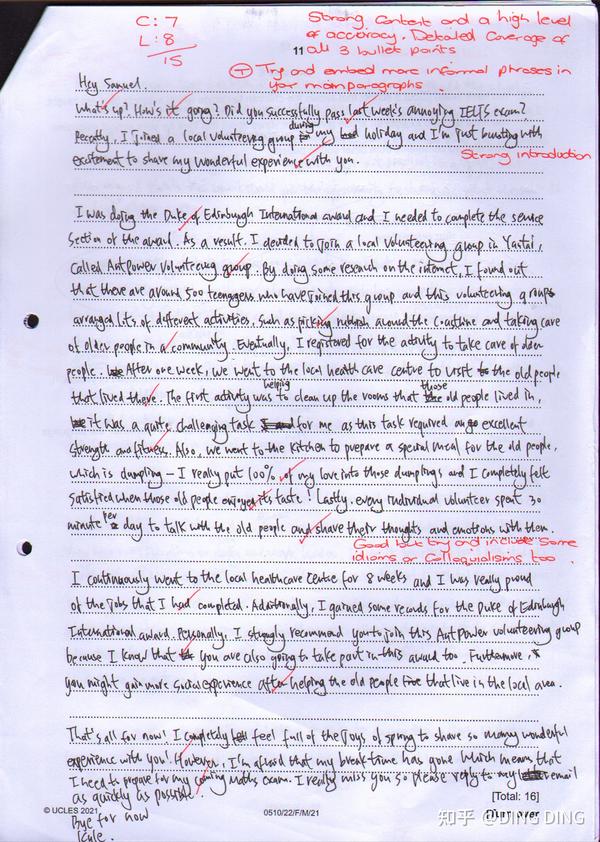 C: 7
L: 8
15
Strong content and a high level
of accuracy. Detailed coverage of
all 3 bullet points
11
T Try and embed more informal phrases in
your main paragraphs.
Hey Samuel.
What's up? How's it going? Did you successfully pass last week's annoying IELTS exam?
Recently, I joined a local volunteering group during my holiday and I'm just bursting with
excitement to share my wonderful experience with you.
Strong introduction
I was doing the Duke of Edinburgh International award and I needed to complete the service
section of the award. As a result, I decided to join a local volunteering group in Yantai,
called AntPower Volunteering group. By doing some research on the internet, I found out
that there are around 500 teenagers who have joined this group and this volunteering group
arranged lots of different activities, such as picking rubbish around the coastline and taking care
of older people in a community. Eventually, I registered for the activity to take care of older
people. After one week, we went to the local health care centre to visit the old people
that lived there. The first activity was to helping clean up the rooms that those old people lived in,
it was a quite challenging task for me as this task required an excellent
strength and fitness. Also, we went to the kitchen to prepare a special meal for the old people,
which is dumpling – I really put 100% of my love into those dumplings and I completely felt
satisfied when those old people enjoyed its taste! Lastly, every individual volunteer spent 30
minute per day to talk with the old people and share their thoughts and emotions with them.
Good but try and include some
idioms or colloquialisms too.
I continuously went to the local healthcare centre for 8 weeks and I was really proud
of the jobs that I had completed. Additionally, I gained some records for the Duke of Edinburgh
International award. Personally, I strongly recommend you to join this AntPower volunteering group
because I know that you are also going to take part in this award too. Furthermore,
you might gain more social experience after helping the old people that live in the local area.
That's all for now! I completely feel full of the joys of spring to share so many wonderful
experience with you! However, I'm afraid that my break time has gone which means that
I need to prepare for my coming maths exam. I really miss you so please reply to my email
as quickly as possible.
[Total: 16]
© UCLES 2021
0510/22/F/M/21
Turn over
Bye for now
知乎 @DING DING